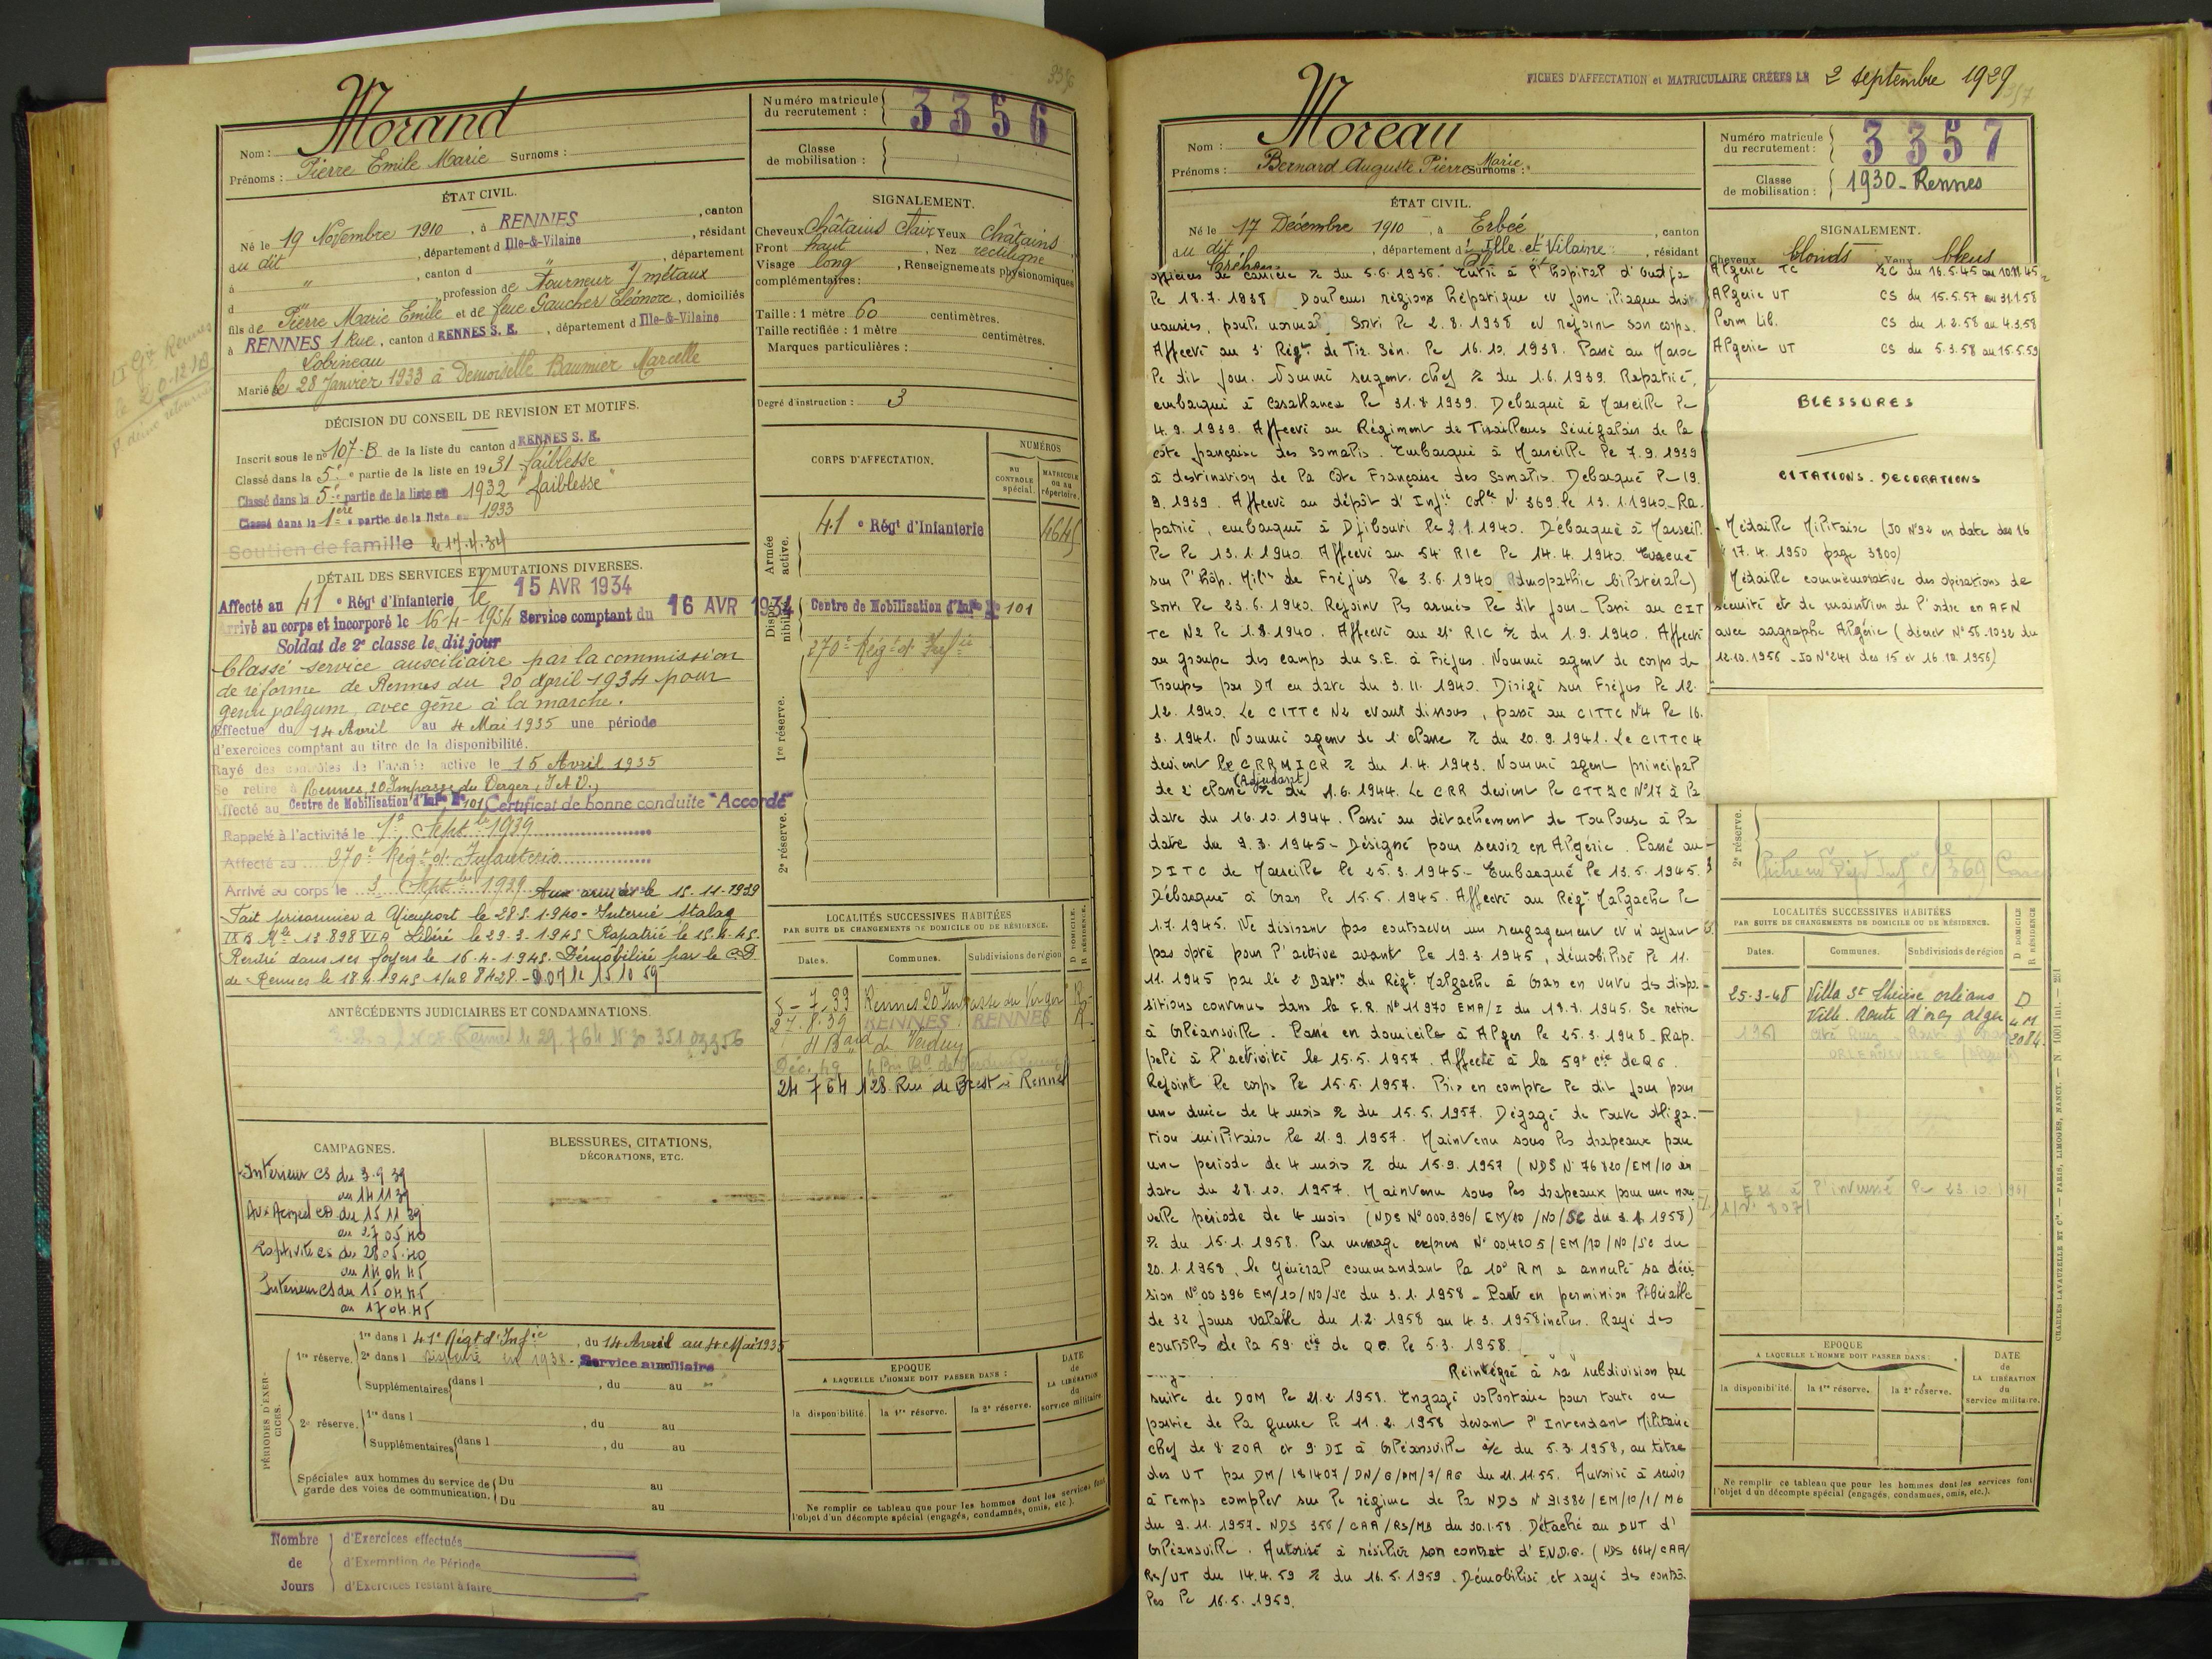 3356
Morand
Nom :
Prénoms : Pierre Emile Marie Surnoms :
Numéro matricule du recrutement : 3356
Classe de mobilisation :
ÉTAT CIVIL.
Né le 19 Novembre 1910, à RENNES, canton
du dit, département d Ille-&-Vilaine, résidant
à ", canton d ", département
d ", profession de Tourneur s/ métaux
fils de Pierre Marie Emile et de feue Gaucher Eléonore, domiciliés
à RENNES 1 Rue, canton d RENNES S. E., département d Ille-&-Vilaine
Lobineau
Marié le 28 Janvier 1933 à Demoiselle Baumier Marcelle
SIGNALEMENT.
Cheveux Châtains clair Yeux châtains
Front haut, Nez rectiligne
Visage long, Renseignements physionomiques
complémentaires :
Taille : 1 mètre 60 centimètres.
Taille rectifiée : 1 mètre centimètres.
Marques particulières :
Degré d'instruction : 3
DÉCISION DU CONSEIL DE REVISION ET MOTIFS.
Inscrit sous le n° 107-B de la liste du canton d RENNES S. E.
Classé dans la 5e partie de la liste en 1931 faiblesse
Classé dans la 5e partie de la liste en 1932 "faiblesse"
Classé dans la 1ere partie de la liste en 1933
Soutien de famille le 17.4.34
DÉTAIL DES SERVICES ET MUTATIONS DIVERSES.
Affecté au 41e Régt d'Infanterie le 15 AVR 1934
Arrivé au corps et incorporé le 16-4-1934 Service comptant du 16 AVR 1934
Soldat de 2e classe le dit jour
Classé service auxiliaire par la commission
de réforme de Rennes du 20 April 1934 pour
genu valgum, avec gêne à la marche.
Effectue du 14 Avril au 4 Mai 1935 une période
d'exercices comptant au titre de la disponibilité.
Rayé des contrôles de l'armée active le 15 Avril 1935
Se retire à Rennes, 20 Impasse du Verger, (I et V.)
Affecté au Centre de Mobilisation d'Infie N° 101 Certificat de bonne conduite "Accordé"
Rappelé à l'activité le 1er Septbre 1939
Affecté au 270e Régt d'Infanterie
Arrivé au corps le 3 Septbre 1939 Aux armées le 15-11-1939
Fait prisonnier à Nieuport le 28.5.1940 - Interné Stalag
IX B Mle 13.898 VIA Libéré le 29.3.1945 Rapatrié le 15.4.45.
Rentré dans ses foyers le 16-4-1945. Démobilisé par le CD
de Rennes le 18.4.1945
CORPS D'AFFECTATION.
NUMÉROS
AU CONTROLE spécial.
MATRICULE ou au répertoire.
Armée active.
41e Régt d'Infanterie
Disponibilité
Centre de Mobilisation d'Infie N° 101
270e Régt d'Infie
1re réserve.
2e réserve.
ANTÉCÉDENTS JUDICIAIRES ET CONDAMNATIONS.
LOCALITÉS SUCCESSIVES HABITÉES
PAR SUITE DE CHANGEMENTS DE DOMICILE OU DE RÉSIDENCE.
Dates. Communes. Subdivisions de région D DOMICILE. R RÉSIDENCE.
Rennes 20 Impasse du Verger R
27.8.39 RENNES RENNES R
24 7 64 128 Rue de Brest à Rennes
CAMPAGNES.
Intérieur CS du 3.9.39
au 14 11 39
Aux Armées CD du 15 11 39
au 27 05 40
Captivité CS du 28.05.40
au 14 04 45
Intérieur CS du 15 04 45
au 17 04 45
BLESSURES, CITATIONS, DÉCORATIONS, ETC.
PÉRIODES D'EXERCICES.
1re réserve. 1re dans l 41e Régt d'Infie, du 14 Avril au 4 Mai 1935
2e dans l Dispensé en 1938 - Service auxiliaire
Supplémentaires dans l , du au
2e réserve. 1re dans l , du au
Supplémentaires dans l , du au
Spéciales aux hommes du service de garde des voies de communication. Du au
Du au
EPOQUE
A LAQUELLE L'HOMME DOIT PASSER DANS :
la disponibilité. la 1re réserve. la 2e réserve.
DATE de LA LIBÉRATION du service militaire.
Ne remplir ce tableau que pour les hommes dont les services font
l'objet d'un décompte spécial (engagés, condamnés, omis, etc.).
Nombre de Jours
d'Exercices effectués
d'Exemption de Période
d'Exercices restant à faire
FICHES D'AFFECTATION et MATRICULAIRE CRÉÉES LE 2 septembre 1929
Moreau
Nom :
Prénoms : Bernard Auguste Pierre Marie Surnoms :
Numéro matricule du recrutement : 3357
Classe de mobilisation : 1930 - Rennes
ÉTAT CIVIL.
Né le 17 Décembre 1910, à Erbée, canton
du dit, département d'Ille et Vilaine, résidant
SIGNALEMENT.
Cheveux blonds Yeux bleus
officiers de carrière % du 5.6.1938. Entré à l'hôpital d'Oudja
le 18.7.1938 Douleurs région hépatique et fosse iliaque droite
nausées, pouls normal. Sorti le 2.8.1938 et rejoint son corps.
Affecté au 3e Régt de Tir. Sén. le 16.10.1938. Passé au Maroc
le dit jour. Nommé sergent-chef % du 1.6.1939. Rapatrié,
embarqué à Casablanca le 31.8.1939. Débarqué à Marseille le
4.9.1939. Affecté au Régiment de Tirailleurs Sénégalais de la
côte française des Somalis. Embarqué à Marseille le 7.9.1939
à destination de la Côte Française des Somalis. Débarqué le 19.
9.1939. Affecté au dépôt d'Infie Cole N° 369 le 13.1.1940. Ra-
patrié, embarqué à Djibouti le 2.1.1940. Débarqué à Marseil-
le le 13.1.1940. Affecté au 54e RIC le 14.4.1940. Evacué
sur l'hôp. Milre de Fréjus le 3.6.1940 (Adénopathie bilatérale)
Sorti le 23.6.1940. Rejoint les armées le dit jour - Passé au CIT
TC N2 le 1.8.1940. Affecté au 21e RIC % du 1.9.1940. Affecté
au groupe des camps du S.E. à Fréjus. Nommé agent de corps de
Troupes par DM en date du 3.11.1940. Dirigé sur Fréjus le 12.
12.1940. Le CITTC N2 étant dissous, passé au CITTC N°4 le 16.
3.1941. Nommé agent de 1e classe % du 20.9.1941. Le CITTC 4
devient le CRRMICR % du 1.4.1943. Nommé agent principal
de 2e classe (Adjudant) % du 1.6.1944. Le CRR devient le CTTSC N°17 à la
date du 16.10.1944. Passé au détachement de Toulouse à la
date du 9.3.1945 - Désigné pour servir en Algérie. Passé au
DITC de Marseille le 25.3.1945. - Embarqué le 13.5.1945.
Débarqué à Oran le 15.5.1945. Affecté au Régt Malgache le
1.7.1945. Ne désirant pas contracter un rengagement et n'ayant
pas opté pour l'active avant le 19.3.1945, démobilisé le 11.
11.1945 par le 2e Baton du Régt Malgache à Oran en vertu des dispo-
sitions contenues dans la F.R. N° 11970 EMA/I du 19.7.1945. Se retire
à Orléansville. Passé en domicile à Alger le 25.3.1948. Rap-
pelé à l'activité le 15.5.1957. Affecté à la 59e Cie de QG.
Rejoint le corps le 15.5.1957. Pris en compte le dit jour pour
une durée de 4 mois % du 15.5.1957. Dégagé de toute obliga-
tion militaire le 21.9.1957. Maintenu sous les drapeaux pour
une période de 4 mois % du 15.9.1957 (NDS N° 76820/EM/10 en
date du 28.10.1957. Maintenu sous les drapeaux pour une nou-
velle période de 4 mois (NDS N° 000.396/EM/10/NO/SC du 3.1.1958)
% du 15.1.1958. Par message express N° 004205/EM/10/NO/SC du
20.1.1958, le Général commandant la 10e RM a annulé sa déci-
sion N° 00396 EM/10/NO/SC du 3.1.1958 - Part en permission libérable
de 32 jours valable du 1.2.1958 au 4.3.1958 inclus. Rayé des
contrôles de la 59e Cie de QG le 5.3.1958.
Réintégré à sa subdivision par
suite de DOM le 21.2.1958. Engagé volontaire pour toute ou
partie de la guerre le 11.2.1958 devant l'Intendant Militaire
chef de 8e ZOA et 9e DI à Orléansville % du 5.3.1958, au titre
des UT par DM/181407/DN/G/AM/7/AG du 21.11.55. Autorisé à servir
à temps complet sur le régime de la NDS N° 91382/EM/10/1/MG
du 9.11.1957 - NDS 356/CAA/RS/MB du 30.1.58. Détaché au BUT d'
Orléansville. Autorisé à résilier son contrat d'E.V.D.G. (NDS 664/CAA/
Rs/UT du 14.4.59 % du 16.5.1959. Démobilisé et rayé des contrô-
les le 16.5.1959.
Algérie TC CC du 16.5.45 au 10.11.45
Algérie UT CS du 15.5.57 au 31.1.58
Perm Lib. CS du 1.2.58 au 4.3.58
Algérie UT CS du 5.3.58 au 15.5.59
BLESSURES
CITATIONS. DECORATIONS
- Médaille Militaire (JO N°92 en date des 16
17.4.1950 page 3800)
Médaille commémorative des opérations de
sécurité et de maintien de l'ordre en AFN
avec agraphe Algérie (décret N° 56.1032 du
12.10.1956 - JO N° 241 des 15 et 16.10.1956)
2e réserve.
LOCALITÉS SUCCESSIVES HABITÉES
PAR SUITE DE CHANGEMENTS DE DOMICILE OU DE RÉSIDENCE.
Dates. Communes. Subdivisions de région D DOMICILE R RÉSIDENCE
25-3-48 Villa St Thérèse Orléans D
Ville. Route d'Oran Alger
1961
ORLEANSVILLE
EPOQUE
A LAQUELLE L'HOMME DOIT PASSER DANS :
la disponibilité. la 1re réserve. la 2e réserve.
DATE de LA LIBÉRATION du service militaire.
Ne remplir ce tableau que pour les hommes dont les services font
l'objet d'un décompte spécial (engagés, condamnés, omis, etc.).
CHARLES LAVAUZELLE ET Cie. — PARIS, LIMOGES, NANCY.